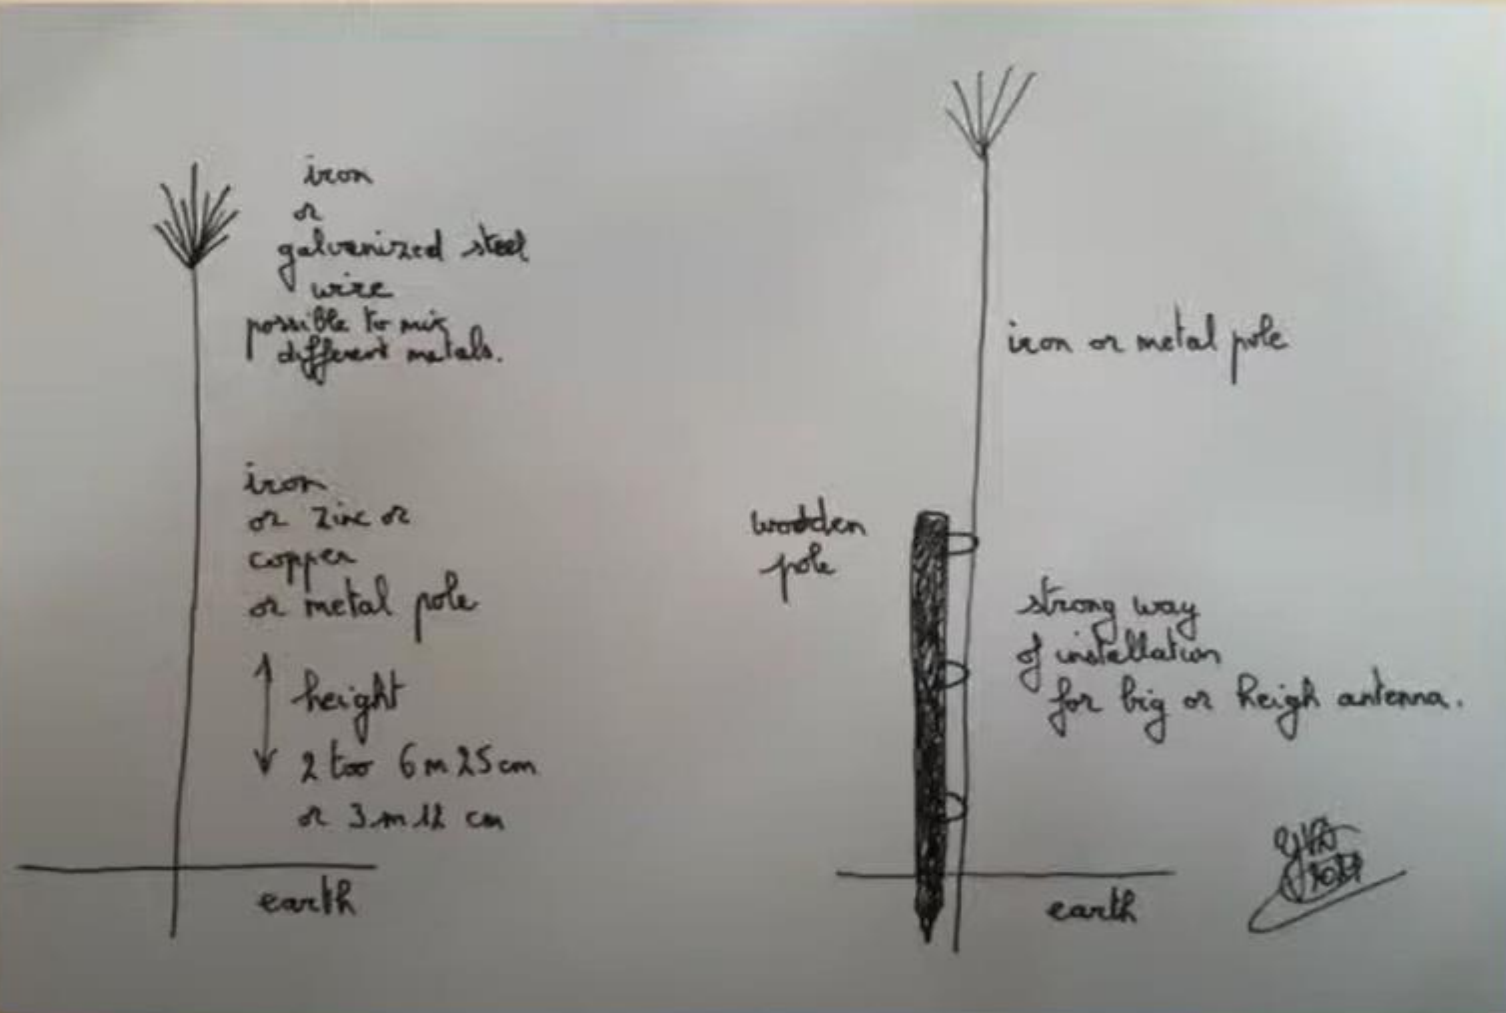 iron
or
galvanized steel
wire
possible to mix
different metals.
iron
or zinc or
copper
or metal pole
height
2 too 6 m 25 cm
or 3 m 12 cm
earth
iron or metal pole
wooden
pole
strong way
of installation
for big or heigh antenna.
earth